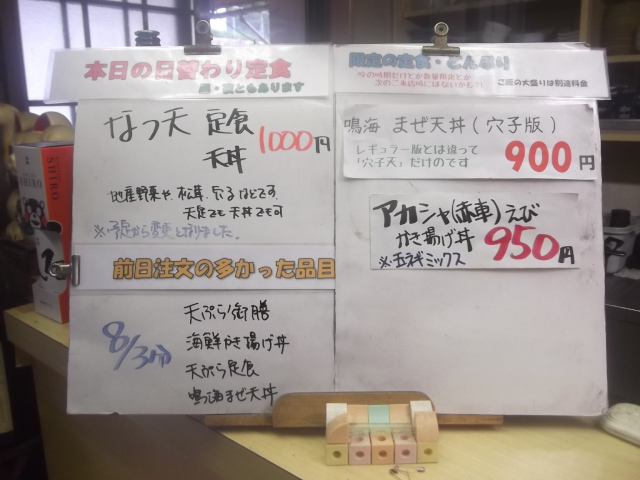 本日の日替わり定食
昼・夜ともあります
なつ天 定食
天丼
1000円
地産野菜や、松茸、穴子などです、
天定でも天丼でも可
※予定から変更となりました。
前日注文の多かった品目
8/3分
天ぷら御膳
海鮮かき揚げ丼
天ぷら定食
鳴海まぜ天丼
限定の定食・どんぶり
今の時期だけとか数量限定とか
次のご来店時にはないかも?!
ご飯の大盛りは別途料金
鳴海 まぜ天丼(穴子版)
レギュラー版とは違って
「穴子天」だけのです
900円
アカシャ(赤車)えび
かき揚げ丼
950円
※玉ネギミックス